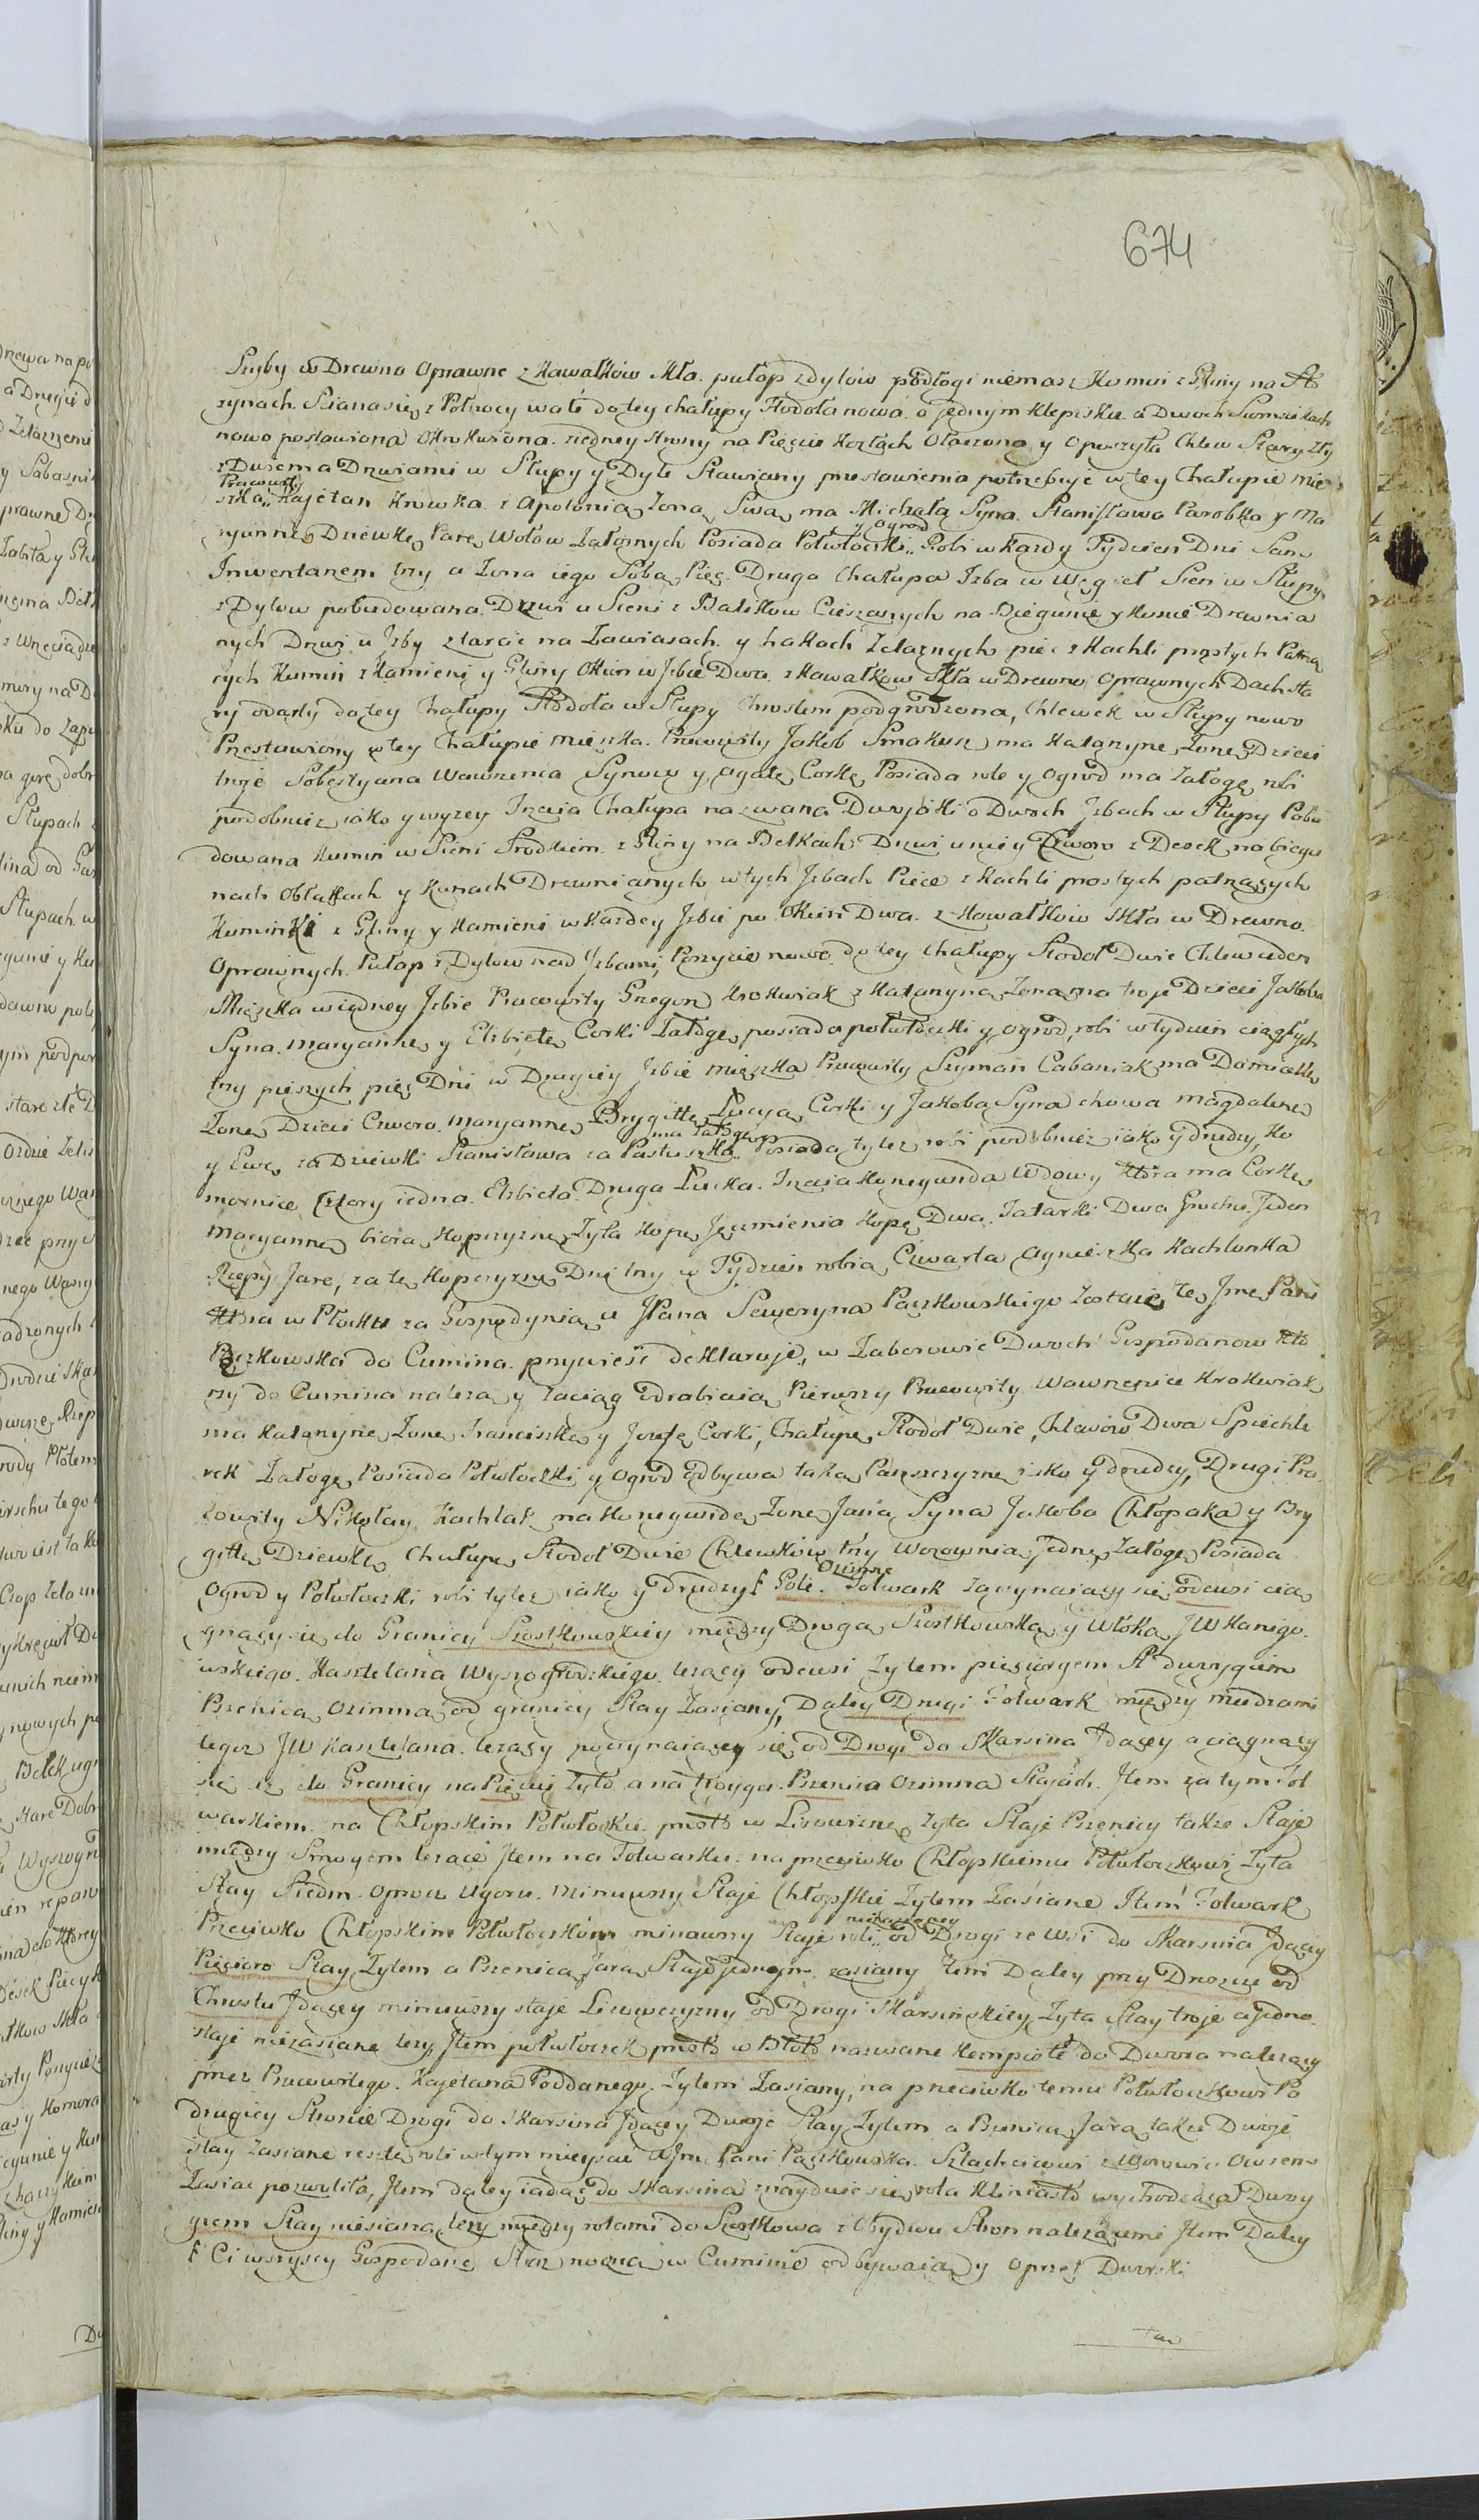 674
Szyby w Drewno Oprawne z Kawałków skła. pułap z dylów podłogi niemasz Kumin z Gliny na Sto
rzynach. Sciana się z Północy wali do tey chałupy Stodoła nowa. o jednym klepisku a Dwoch Sąmsiekach
nowo postawiona Okrokwiona. z iedney strony na Pięciu Kozłach Ołacona y Oposzyta Chlew Stary zły
z Dwiema Drzwiami w Słupy y Dyle Stawiany przestawienia potrzebuje w tey Chałupie mie
Pracowity
szka Kajetan Krowka. z Apolonią Zoną Swą ma Michała Syna. Stanisława Parobka y Ma
y Ogrod
ryannę Dziewkę Parę Wołów Załoznych Posiada Połwłoczki Robi w Kazdy Tydzien Dni Sam
Inwentarzem trzy a Zona iego Sobą Pięć. Druga Chałupa Izba w Węgieł Sien w Słupy
z Dylow pobudowana. Drzwi u Sieni z Balikow Cieszanych na Biegunie y Kunie Drewnia
nych Drzwi u Izby z tarcic na Zawiasach y hakach Zelaznych piec z Kachli prostych Patrzą
cych Kumin z Kamieni y Gliny Okien w Izbie Dwa. z Kawałkow Skła w Drewno Oprawnych Dach sta
ry odarty do tey Chałupy Stodoła w Słupy Chrostem podgrodzona, Chlewek w Słupy nowo
Przestawiony w tey Chałupie mieszka. Pracowity Jakob Smakusz ma Katarzynę Zonę Dzieci
troje Sobestyana Wawrzenca Synow y Agatę Corkę Posiada rolę y Ogrod ma Załogę robi
podobniez iako y wyzey Trzecia Chałupa nazwana Dwojaki o Dwoch Izbach w Słupy Pobu
dowana Kumin w Sieni Srodkiem z Gliny na Belkach Drzwi u niey Czworo z Desek na biegu
nach Obłąkach y Kunach Drewnianych w tych Izbach Piece z Kachli prostych patrzących
Kuminki z Gliny y Kamieni w Kazdey Izbie po Okien Dwa. z Kawałków skła w Drewno
Oprawnych. Pułap z Dylow nad Izbami, Poszycie nowe. do tey Chałupy Stodoł Dwie Chlew ieden
Mieszka w iedney Izbie Pracowity Grzegorz Krokwiak z Katarzyną Zoną ma troje Dzieci Jakoba
Syna. Maryannę y Elzbietę Corki Załogę, posiada połwłoczki y ogrod, robi w tydzien ciągłych
trzy pieszych pięć Dni w Drugiey Izbie mięszka Pracowity Szyman Cabaniak ma Domicellę
Zonę Dzieci Czworo. Maryannę Brygittę Łucyą Corki y Jakoba Syna chowa Magdalenę
ma Załogę
y Ewę za Dziewki Stanisława za Pastuszka. Posiada tylez robi podobniez iako y drudzy, Ko
mornice Cztery iedna. Elzbieta. Druga Łucka. Trzecia Konegunda Wdowy ktora ma Corkę
Maryannę biorą Kopczyznę Zyta Kopę Jęczmienia Kopę Dwa. Tatarki Dwa Grochu. Jeden
Rzepy Jare, za tę Kopczyznę Dni trzy w Tydzien robią Czwarta Agnieszka Kachlonka
Ktora w Płocku za Gospodynią u JPana Seweryna Pączkowskiego zostaie tę Jme Pani
Pączkowska do Cumina. przywieść deklaruje, w Zaborowie Dwoch Gospodarzow Kto
rzy do Cumina nalezą y zaciąg odrabiaią Pierwszy Pracowity Wawrzeniec Krokwiak
ma Katarzynę Zonę Franciszkę y Jozefę Corki, Chałupę Stodoł Dwie, Chlewów Dwa Spiechle
rek Załogę Posiada Połwłoczki y Ogrod odbywa taką Panszczyznę iako y drudzy, Drugi Pra
cowity Nikołay Kachlak ma Konegundę Zonę Jana Syna Jakoba Chłopaka y Bry
gittę Dziewkę Chałupę Stodoł Dwie Chlewkow trzy Wozownią Jedną Załogę Posiada
Ozimne
Ogrod y Połwłoczki robi tylez iako y Drudzy Ł Pole. Folwark zaczynaiący się od wsi cią
gnący się do Granicy Szostkowskiey między Drogą Szostkowską y Włoką JW Kanigo
wskiego. Kasztelana Wyszogrodzkiego. lezący od wsi Zytem pięciorgiem St dwoygiem
Pszenicą Ozimną od granicy Stay Zasiany, Daley Drugi Folwark między miedzami
tegoz JW Kasztelana. lezący poczynaiący się od Drogi do Skarzina Idącey a ciągnący
się az do Granicy na Pięciu Zyto a na troygu. Pszenica Ozimna Stajach. Item za tym fol
warkiem. na Chłopskim Połwłoczku. prosto w Lisowiznę Zyta Staje Pszenicy takze Staje
między Smugiem lezące Item na Folwarku. na przeciwko Chłopskiemu Połwłoczkowi Zyta
Stay Siedm. Oprocz Ugoru. minąwszy Staje Chłopskie Zytem Zasiane Item Folwark
Przeciwko Chłopskim Połwłoczkom minąwszy Staje roli od Drogi ze Wsi do Skarzina Idącey
Pięcioro Stay Zytem a Pszenicą Jarą Stajo jednym. zasiany Item Daley przy Drozce od
Chrostu Idącey minąwszy staje Lisowczyzny od Drogi Skarzinskiey Zyta Stay troje a Jedno
staje niezasiane lezy, Item połwłoczek prosto w Błoto nazwane Kempiste do Dwora nalezący
przez Pracowitego. Kajetana Poddanego. Zytem Zasiany, na przeciwko temu Połwłoczkowi Po
drugiey Stronie Drogi do Skarzina Idącey Dwoje Stay Zytem a Pszenicą Jarą takze Dwoje
stay zasiane resztę roli w tym mieyscu WJm Pani Pączkowska. Szlachcicowi z Worowic Owsem
Zasiac pozwoliła, Item daley iadąc do Skarzina znayduie się rola Kliniasto wychodząca Dwoy
giem Stay niesiana lezy między rolami do Szostkowa z Obydwu Stron nalezącemi Item Daley
Ł Ci wszyscy Gospodarze Stroz nocną w Cuminie odbywaią y Oprzęt Dworski